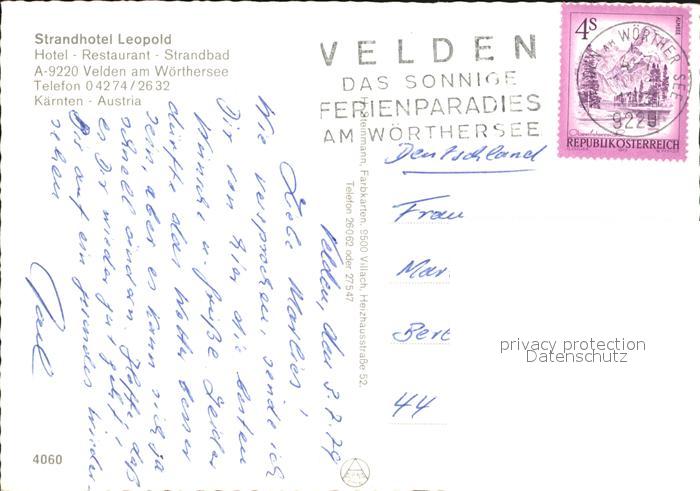 Strandhotel Leopold
Hotel - Restaurant - Strandbad
A-9220 Velden am Wörthersee
Telefon 04274/2632
Kärnten - Austria
VELDEN
DAS SONNIGE
FERIENPARADIES
AM WÖRTHERSEE
4S
ALMSEE
AM WÖRTHER SEE
9220
REPUBLIK ÖSTERREICH
Velden, den 3.7.79
Liebe Marlies!
Wie versprochen, sende ich
Dir von hier die besten
Wünsche u. Grüße. Leider
dürfte das Wetter besser
sein, aber es kann sich ja
schnell ändern. Hoffe, daß
es Dir wieder gut geht!
Bis auf ein gesundes Wieder-
sehen
Paul
Steinmann, Farbkarten, 9500 Villach, Heizhausstraße 52,
Telefon 26062 oder 27547
Deutschland
Frau
Mar
Bert
44
privacy protection
Datenschutz
4060